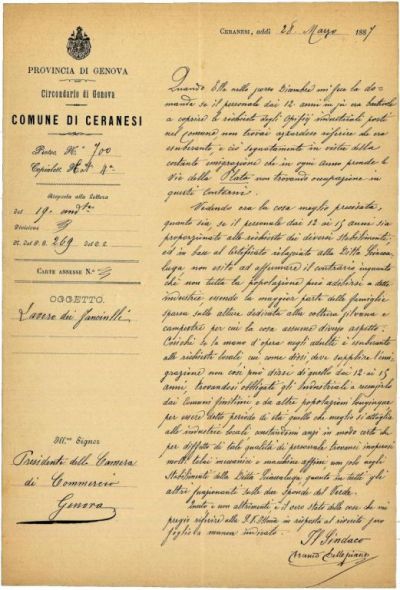 PROVINCIA DI GENOVA
Circondario di Genova
COMUNE DI CERANESI
Prot. N.° 700
Risposta alla lettera
del 19 and.te
Divisione 3
N. del P. G. 269 del
CARTE ANNESSE N.°
OGGETTO.
Lavoro dei fanciulli
Ill.mo Signor
Presidente della Camera
di Commercio
Genova
CERANESI, addì 28 Marzo 1887
Quando Ella nello scorso Dicembre mi fece la do-
manda se il personale dai 12 anni in su era bastevole
a coprire le richieste degli Opifizj industriali posti
nel comune non trovai azzardoso riferire che era
esuberante e ciò segnatamente in vista della
costante emigrazione che in ogni anno prende la
via della Plata non trovando occupazione in
questi contorni.
Vedendo ora la cosa meglio precisata,
quanto sia se il personale dai 12 ai 15 anni sia
proporzionato alle richieste dei diversi stabilimenti,
ed in base al certificato rilasciato alla Ditta
non esito ad affermare il contrario inquanto
chè non tutta la popolazione può adibirsi a delle
industrie, essendo la maggior parte delle famiglie
sparse sulle alture dedicata alla coltura silvana e
campestre per cui la cosa assume diverso aspetto.
Cosichè se la mano d'opera negli adulti è esuberante
alle richieste locali cui come dissi, deve supplire l'emi-
grazione non così può dirsi di quello dai 12 ai 15
anni, trovandosi obbligati gli Industriali a
dai Comuni limitrofi e da altre popolazioni longinque
per avere detto periodo di età quello che meglio si attaglia
alle industrie locali constandomi anzi in modo certo che
per difetto di tale qualità di personale trovansi inoperosi
molti telai meccanici e macchine affini non solo negli
Stabilimenti della Ditta quanto in tutti gli
altri funzionanti sulle due Sponde del Verde.
Tanto e non altrimenti è il vero stato delle cose che mi
pregio riferire alla S.V. Ill.ma in risposta al riverito suo
foglio a manca indicato.
Il Sindaco